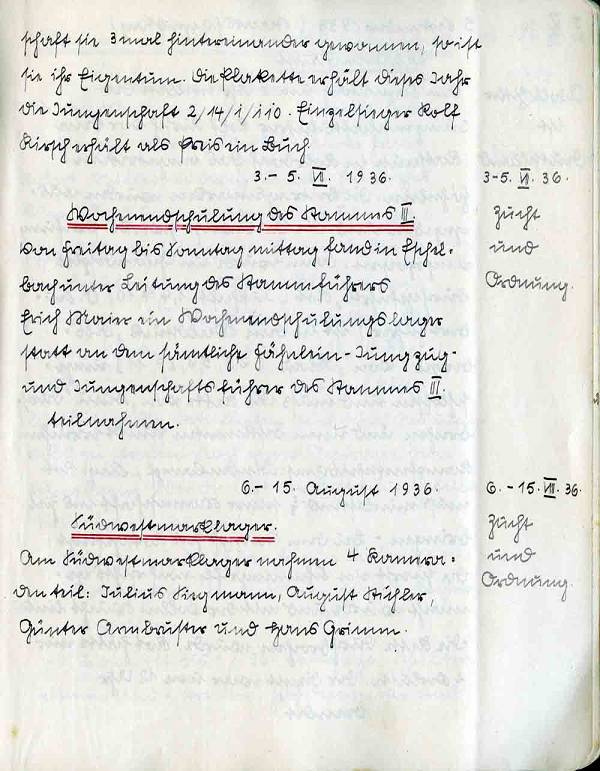 schaft sie 3 mal hintereinander gewonnen, so ist
sie ihr Eigentum. Die Plakette erhält dieses Jahr
die Jungenschaft 2/14/1/110. Einzelsieger Rolf
Hirsch erhält als Preis ein Buch.
3. - 5. VII. 1936.
3-5. VII. 36.
Wochenendschulung des Stammes III.
Zucht
und
Ordnung.
Von Freitag bis Sonntag mittag fand in Eschel-
bach unter Leitung des Stammführers
Erich Maier ein Wochenendschulungslager
statt an dem sämtliche Fähnlein-Jungzug-
und Jungenschaftsführer des Stammes III.
teilnahmen.
6. - 15. August 1936.
6. - 15. VIII. 36.
Südwestmarklager.
Zucht
und
Ordnung.
Am Südwestmarklager nahmen 4 Kamera-
den teil: Julius Siegmann, August Stühler,
Günter Armbruster und Hans Grimm.